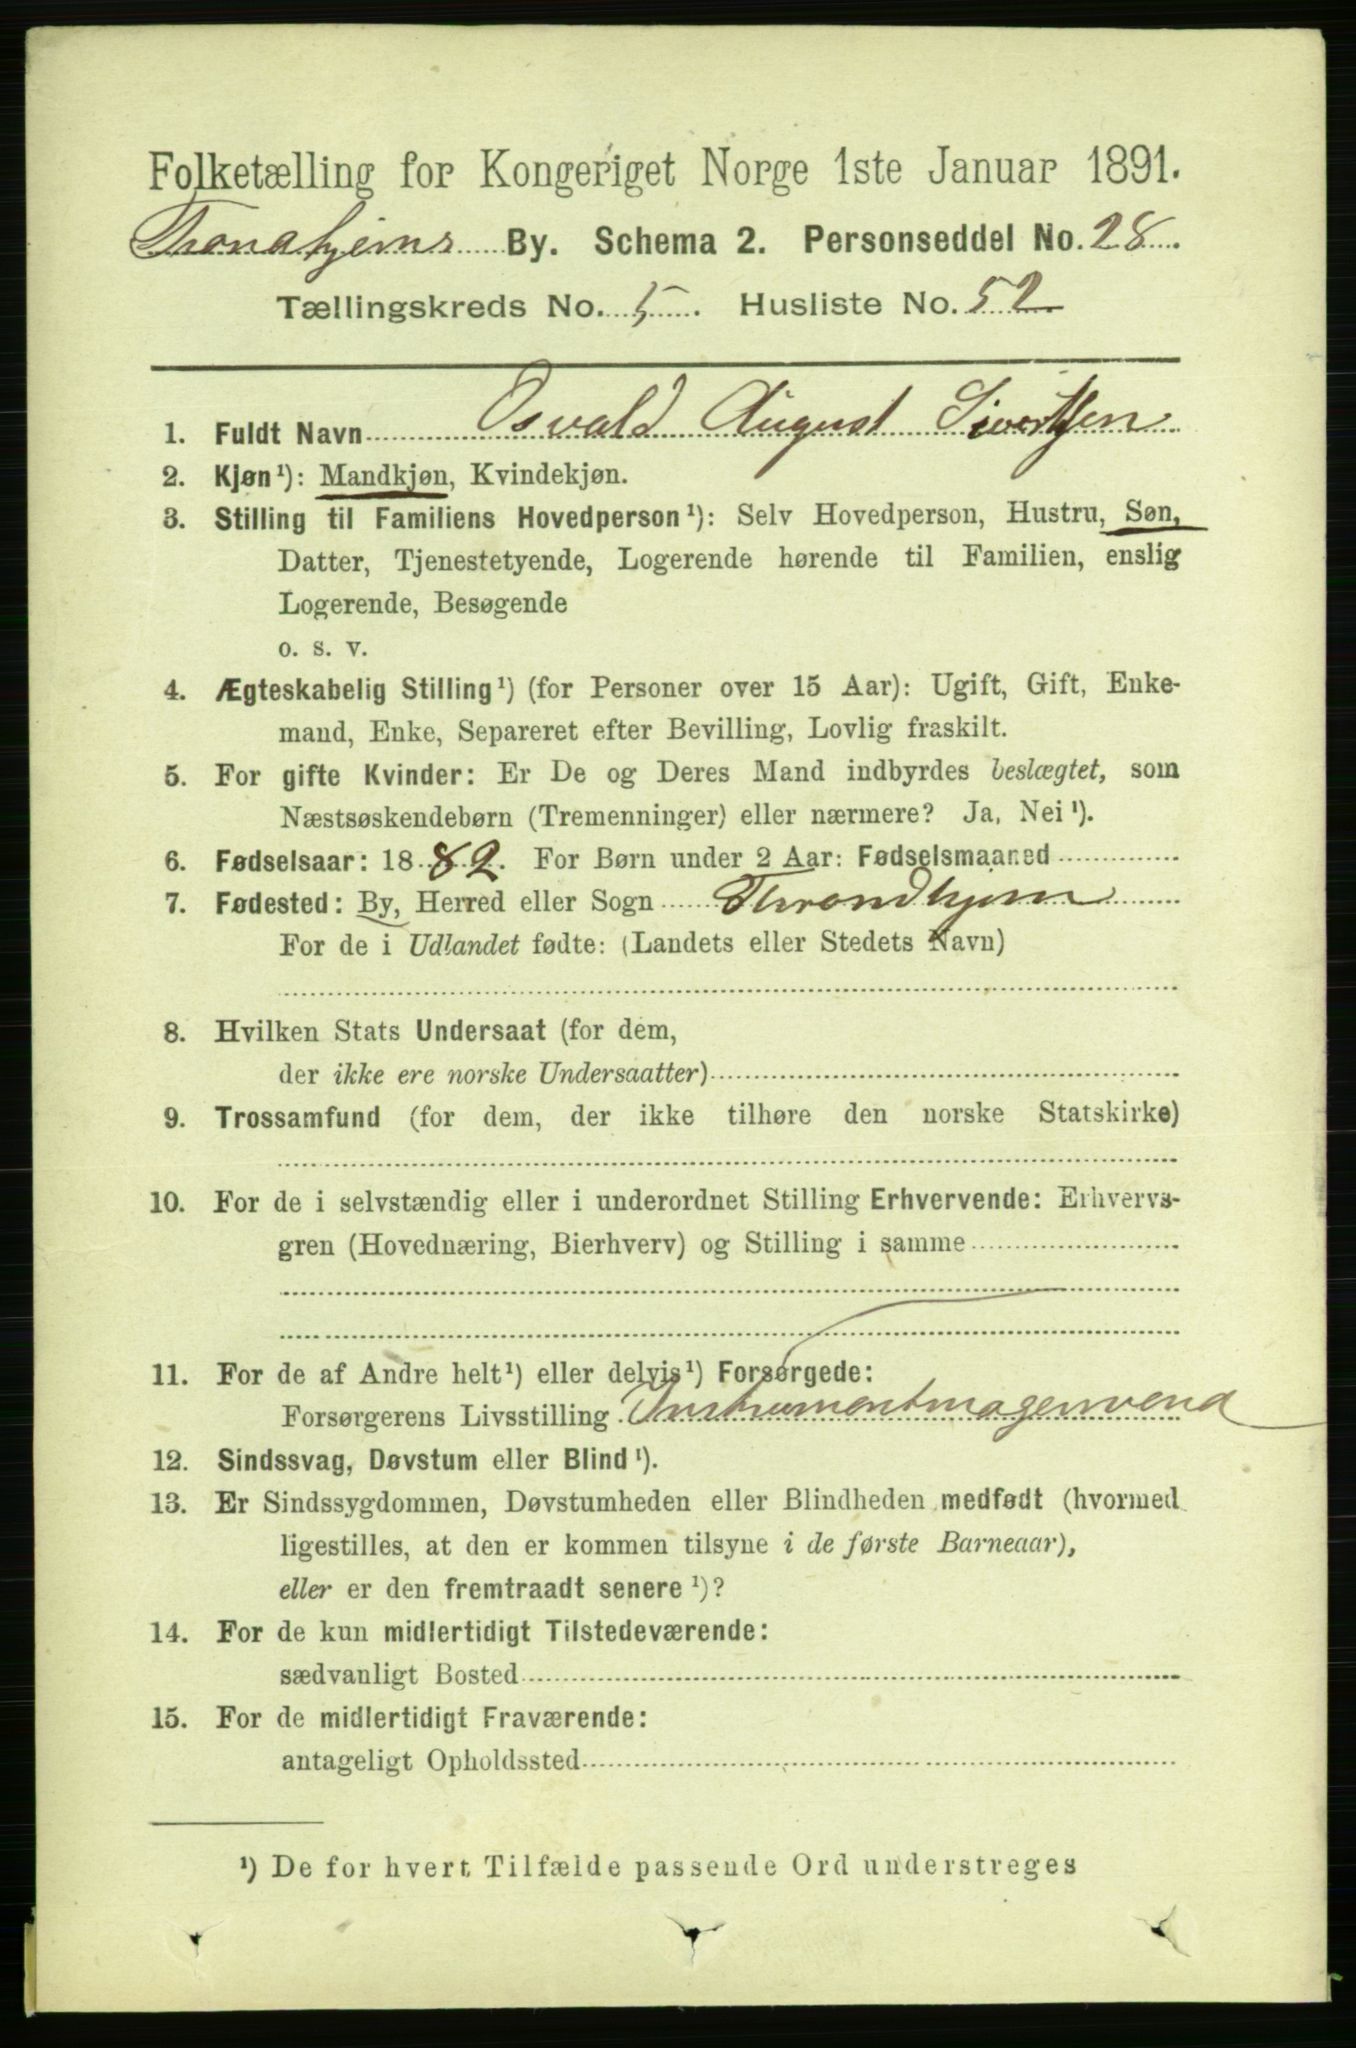 Folketælling for Kongeriget Norge 1ste Januar 1891.
Trondhjems By. Schema 2. Personseddel No. 28.
Tællingskreds No. 5. Husliste No. 52
1. Fuldt Navn Osvald August Sivertsen
2. Kjøn¹): Mandkjøn, Kvindekjøn.
3. Stilling til Familiens Hovedperson¹): Selv Hovedperson, Hustru, Søn,
Datter, Tjenestetyende, Logerende hørende til Familien, enslig
Logerende, Besøgende
o. s. v.
4. Ægteskabelig Stilling¹) (for Personer over 15 Aar): Ugift, Gift, Enke-
mand, Enke, Separeret efter Bevilling, Lovlig fraskilt.
5. For gifte Kvinder: Er De og Deres Mand indbyrdes beslægtet, som
Næstsøskendebørn (Tremenninger) eller nærmere? Ja, Nei¹).
6. Fødselsaar: 1882. For Børn under 2 Aar: Fødselsmaaned
7. Fødested: By, Herred eller Sogn Throndhjem
For de i Udlandet fødte: (Landets eller Stedets Navn)
8. Hvilken Stats Undersaat (for dem,
der ikke ere norske Undersaatter)
9. Trossamfund (for dem, der ikke tilhøre den norske Statskirke)
10. For de i selvstændig eller i underordnet Stilling Erhvervende: Erhvervs-
gren (Hovednæring, Bierhverv) og Stilling i samme
11. For de af Andre helt¹) eller delvis¹) Forsørgede:
Forsørgerens Livsstilling Instrumentmagersvend
12. Sindssvag, Døvstum eller Blind¹).
13. Er Sindssygdommen, Døvstumheden eller Blindheden medfødt (hvormed
ligestilles, at den er kommen tilsyne i de første Barneaar),
eller er den fremtraadt senere¹)?
14. For de kun midlertidigt Tilstedeværende:
sædvanligt Bosted
15. For de midlertidigt Fraværende:
antageligt Opholdssted
¹) De for hvert Tilfælde passende Ord understreges